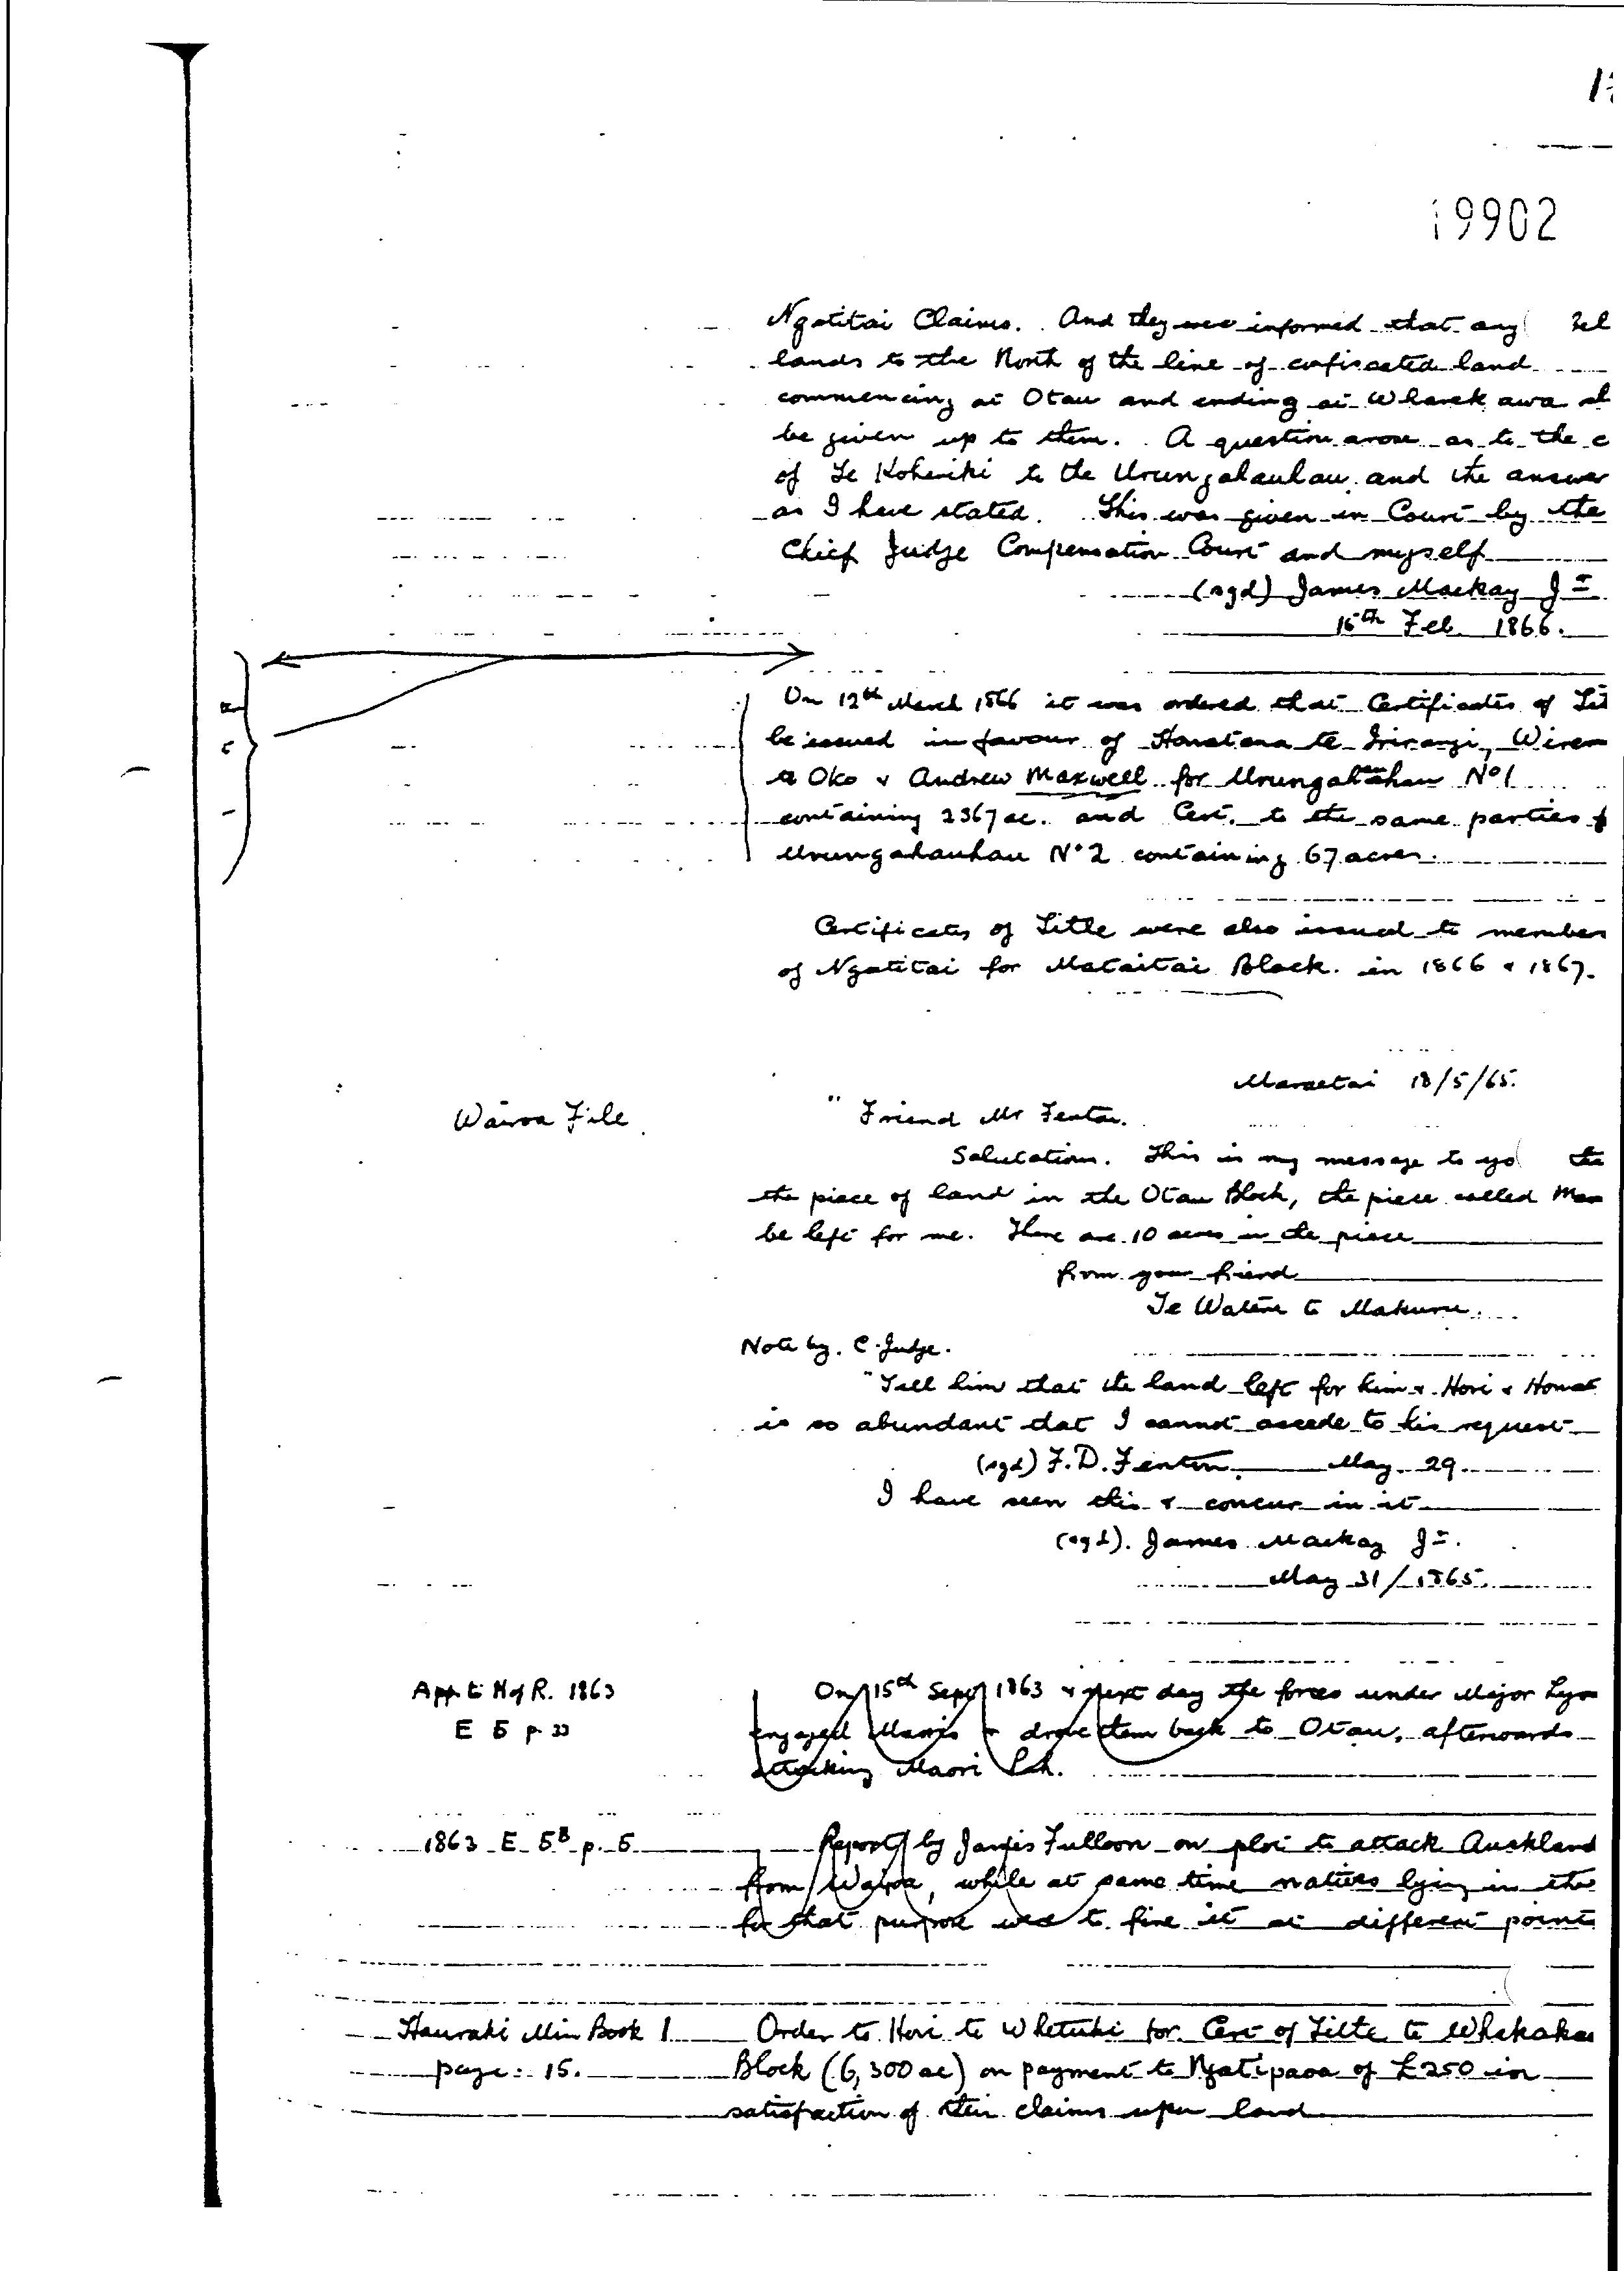 19902
Ngatitai Claims. And they were informed that any
lands to the North of the line of confiscated land
commencing at Otau and ending at Wharekawa
be given up to them. A question arose as to the c
of Te Koheriki to the Urungahauhau and the answer
as I have stated. This was given in Court by the
Chief Judge Compensation Court and myself
(sgd) James Mackay Jr
Feb. 1866.
On 12th March 1866 it was ordered that Certificates of Tit
be issued in favour of Honatana te Irirangi, Wirem
te Oko & Andrew Maxwell for Urungahauhau No 1
containing 2367 ac. and Cert. to the same parties f
Urungahauhau No 2 containing 67 acres.
Certificates of Title were also issued to member
of Ngatitai for Mataitai Block in 1866 & 1867.
Maraetai 18/5/65.
Wairoa File
" Friend Mr Fenton.
Salutations. This is my message to yo
the piece of land in the Otau Block, the piece called
be left for me. There are 10 acres in the piece
from your friend
Te Watene te Makuru.
Note by. C. Judge.
"Tell him that the land left for him & Hori & Honat
is so abundant that I cannot accede to his request
(sgd) F.D. Fenton. May 29
I have seen this & concur in it
(sgd). James Mackay Jr.
May 31/1865.
App. to H of R. 1863
E 5 p. 33
On 15th Sept 1863 & next day the forces under Major Lyon
engaged Maoris & drove them back to Otau, afterwards
attacking Maori Pah.
1863 E 5B p. 5
Report by James Fulloon on plot to attack Auckland
from Wairoa, while at same time natives lying in
for that purpose were to fire it at different points
Hauraki Min Book 1
page: 15.
Order to Hori te Whetuki for Cert of Title to Whakaka
Block (6,300 ac) on payment to Ngatipaoa of £250 in
satisfaction of their claims upon land